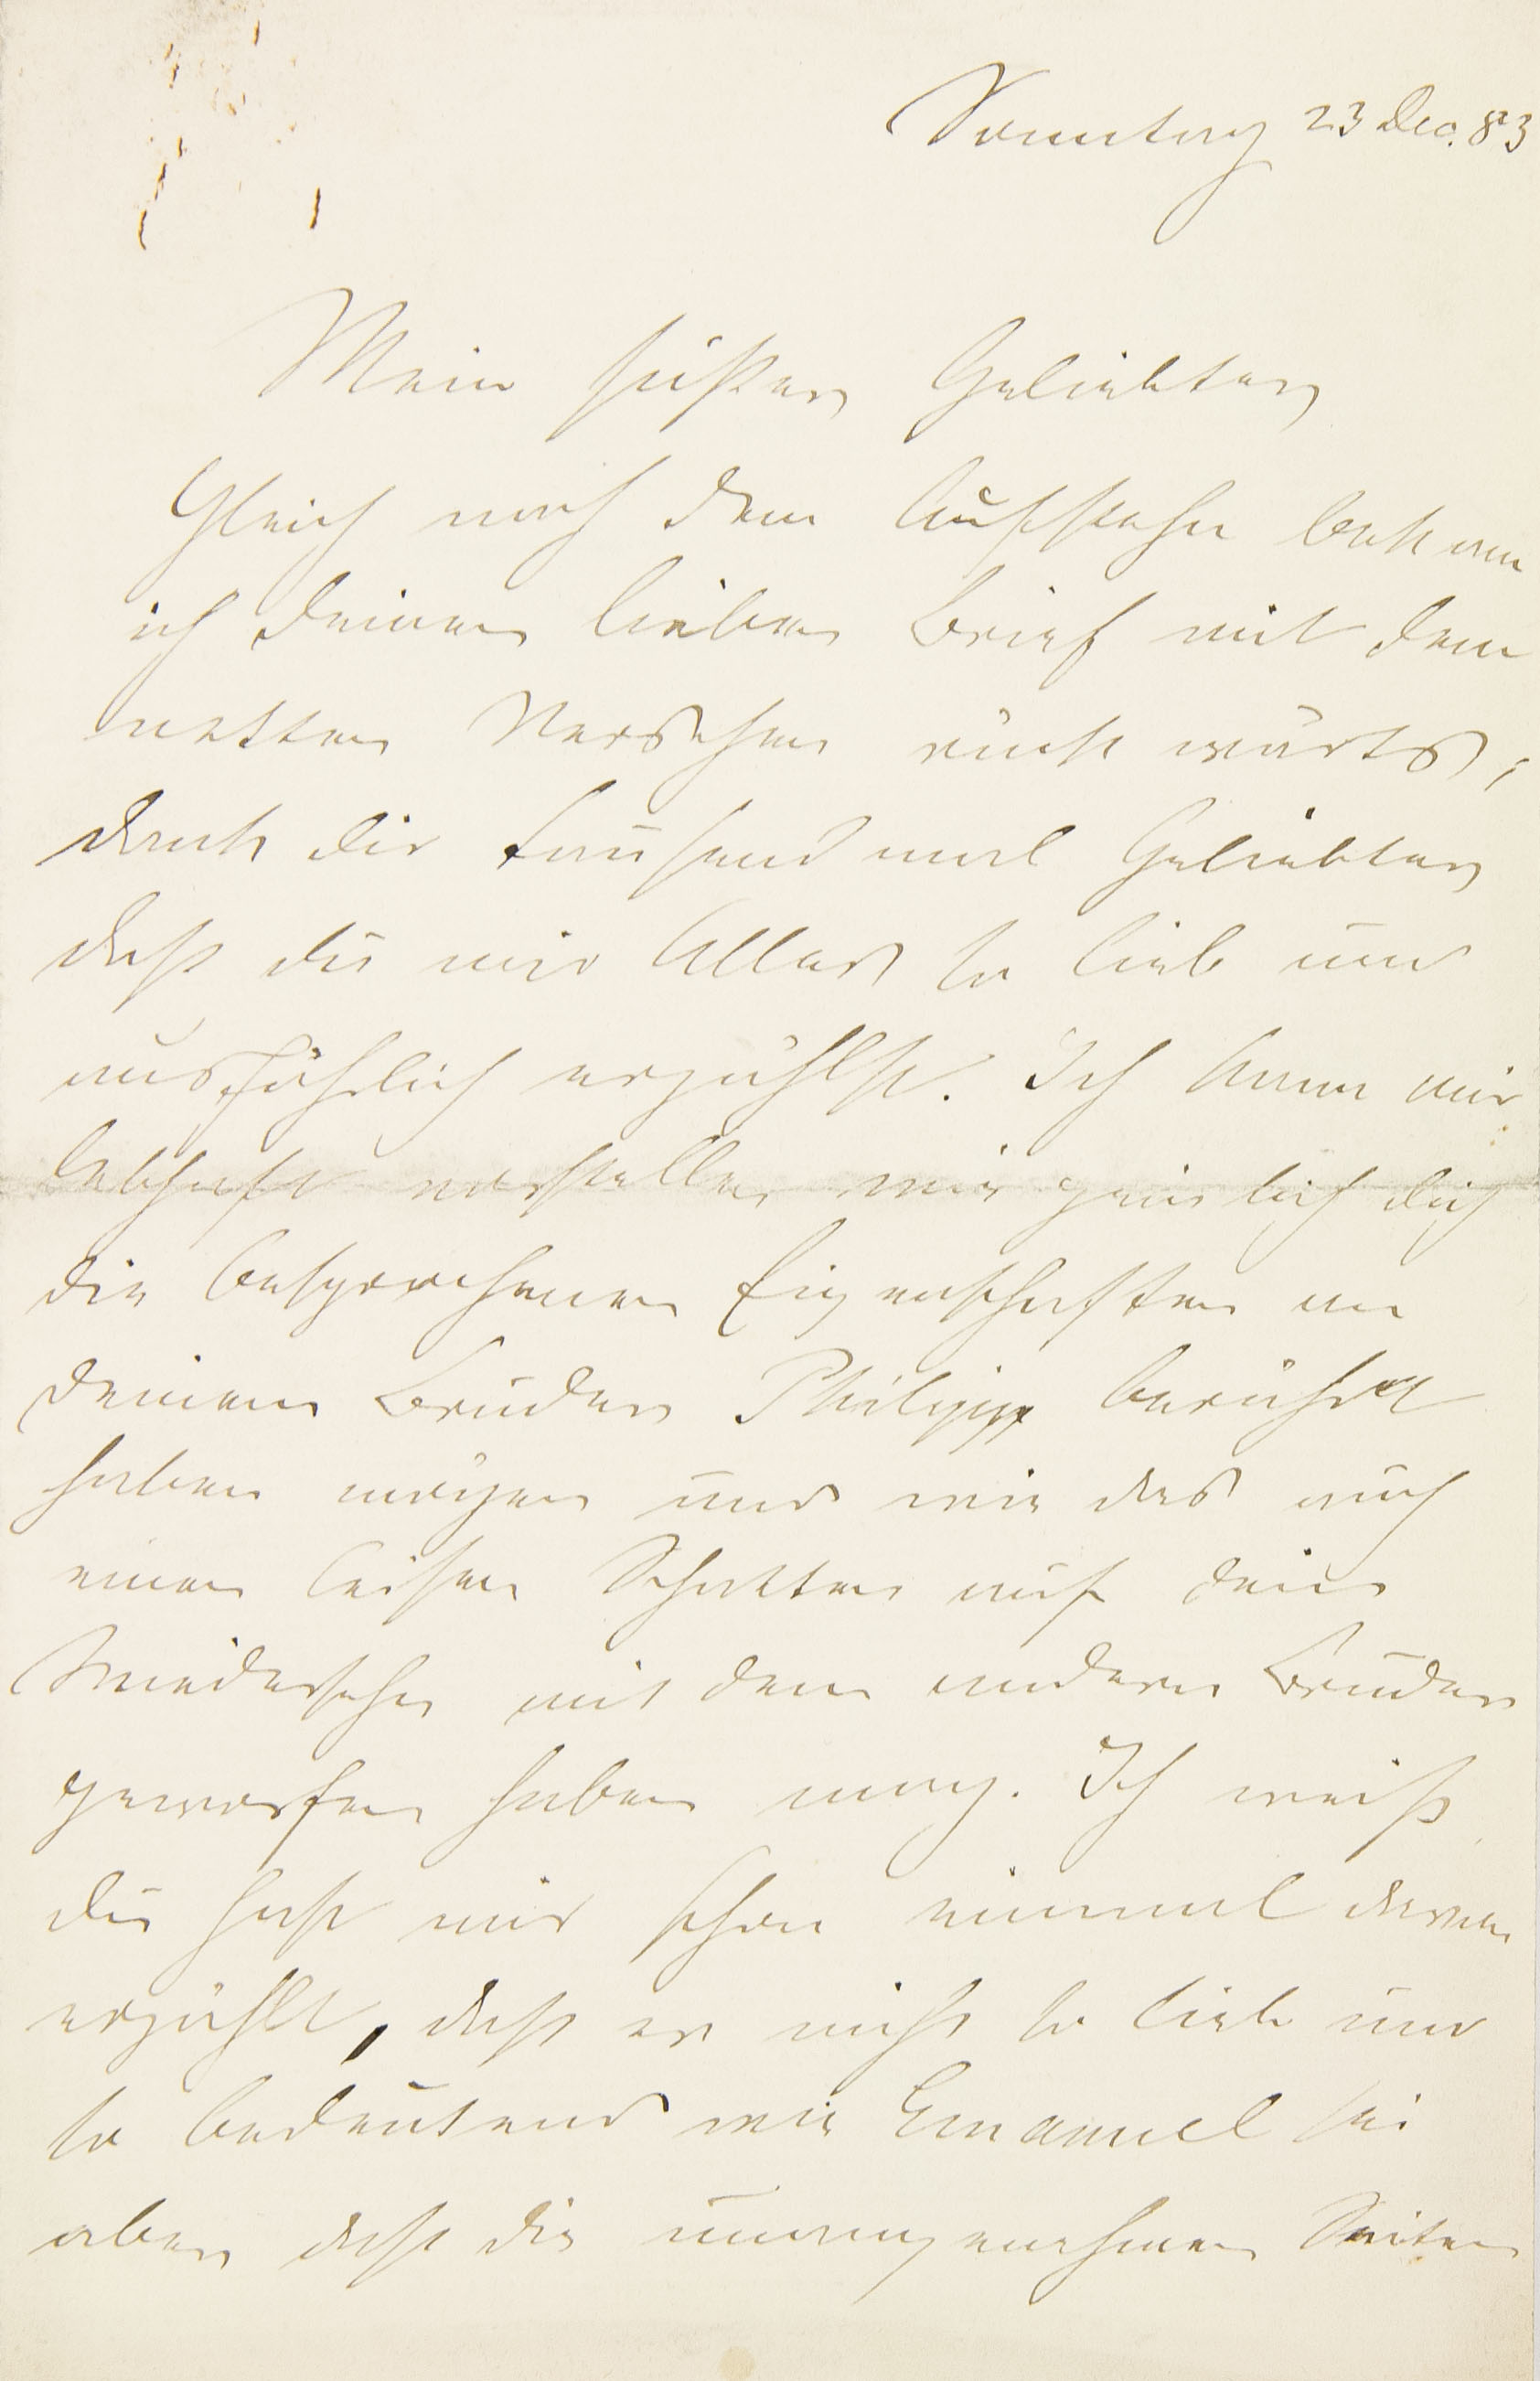 Sonntag 23 Dec. 83
Mein süßer Geliebter
Gleich nach dem Aufstehn bekam
ich deinen lieben Brief mit dem
netten Verschen rückwärts,
dank dir tausend mal Geliebter
daß du mir Alles so lieb und
ausführlich erzählst. Ich kann mir
lebhaft vorstellen wie peinlich dich
die besprochenen Eigenschaften an
deinem Bruder Philipp berührt
haben mögen und wie das auch
einen leisen Schatten auf dein
Wiedersehn mit dem andern Bruder
geworfen haben mag. Ich weiß
du hast mir schon einmal davon
erzählt, daß er nicht so lieb und
so bedeutend wie Emanuel sei
aber daß die unangenehmen Seiten